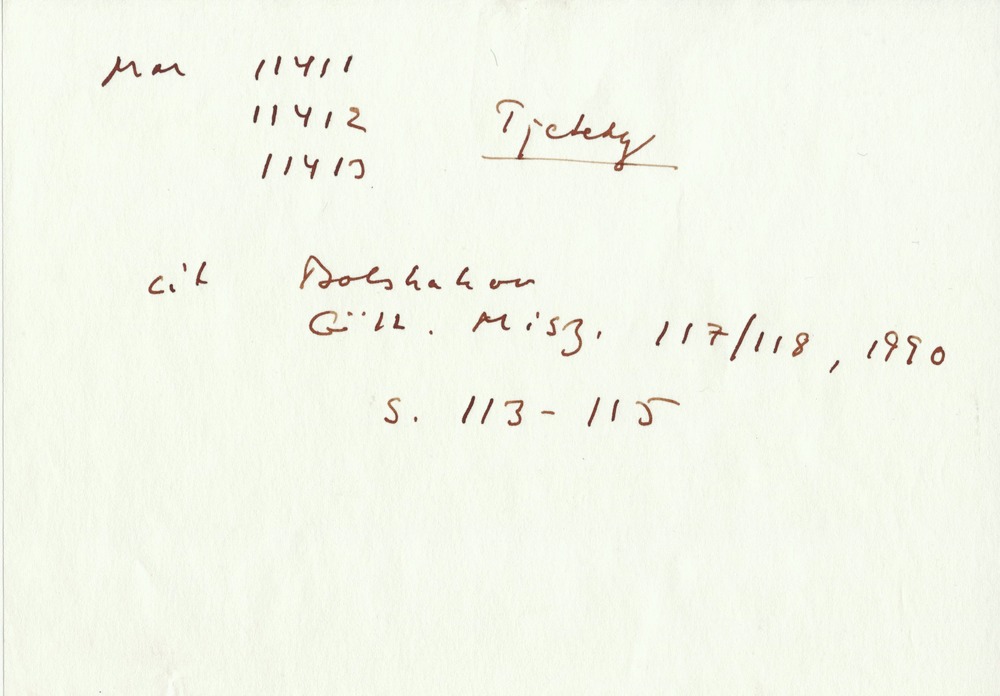 MM 11411
11412 Tjetety
11413
cit Bolshakov
Gött. Misz. 117/118, 1990
S. 113-115